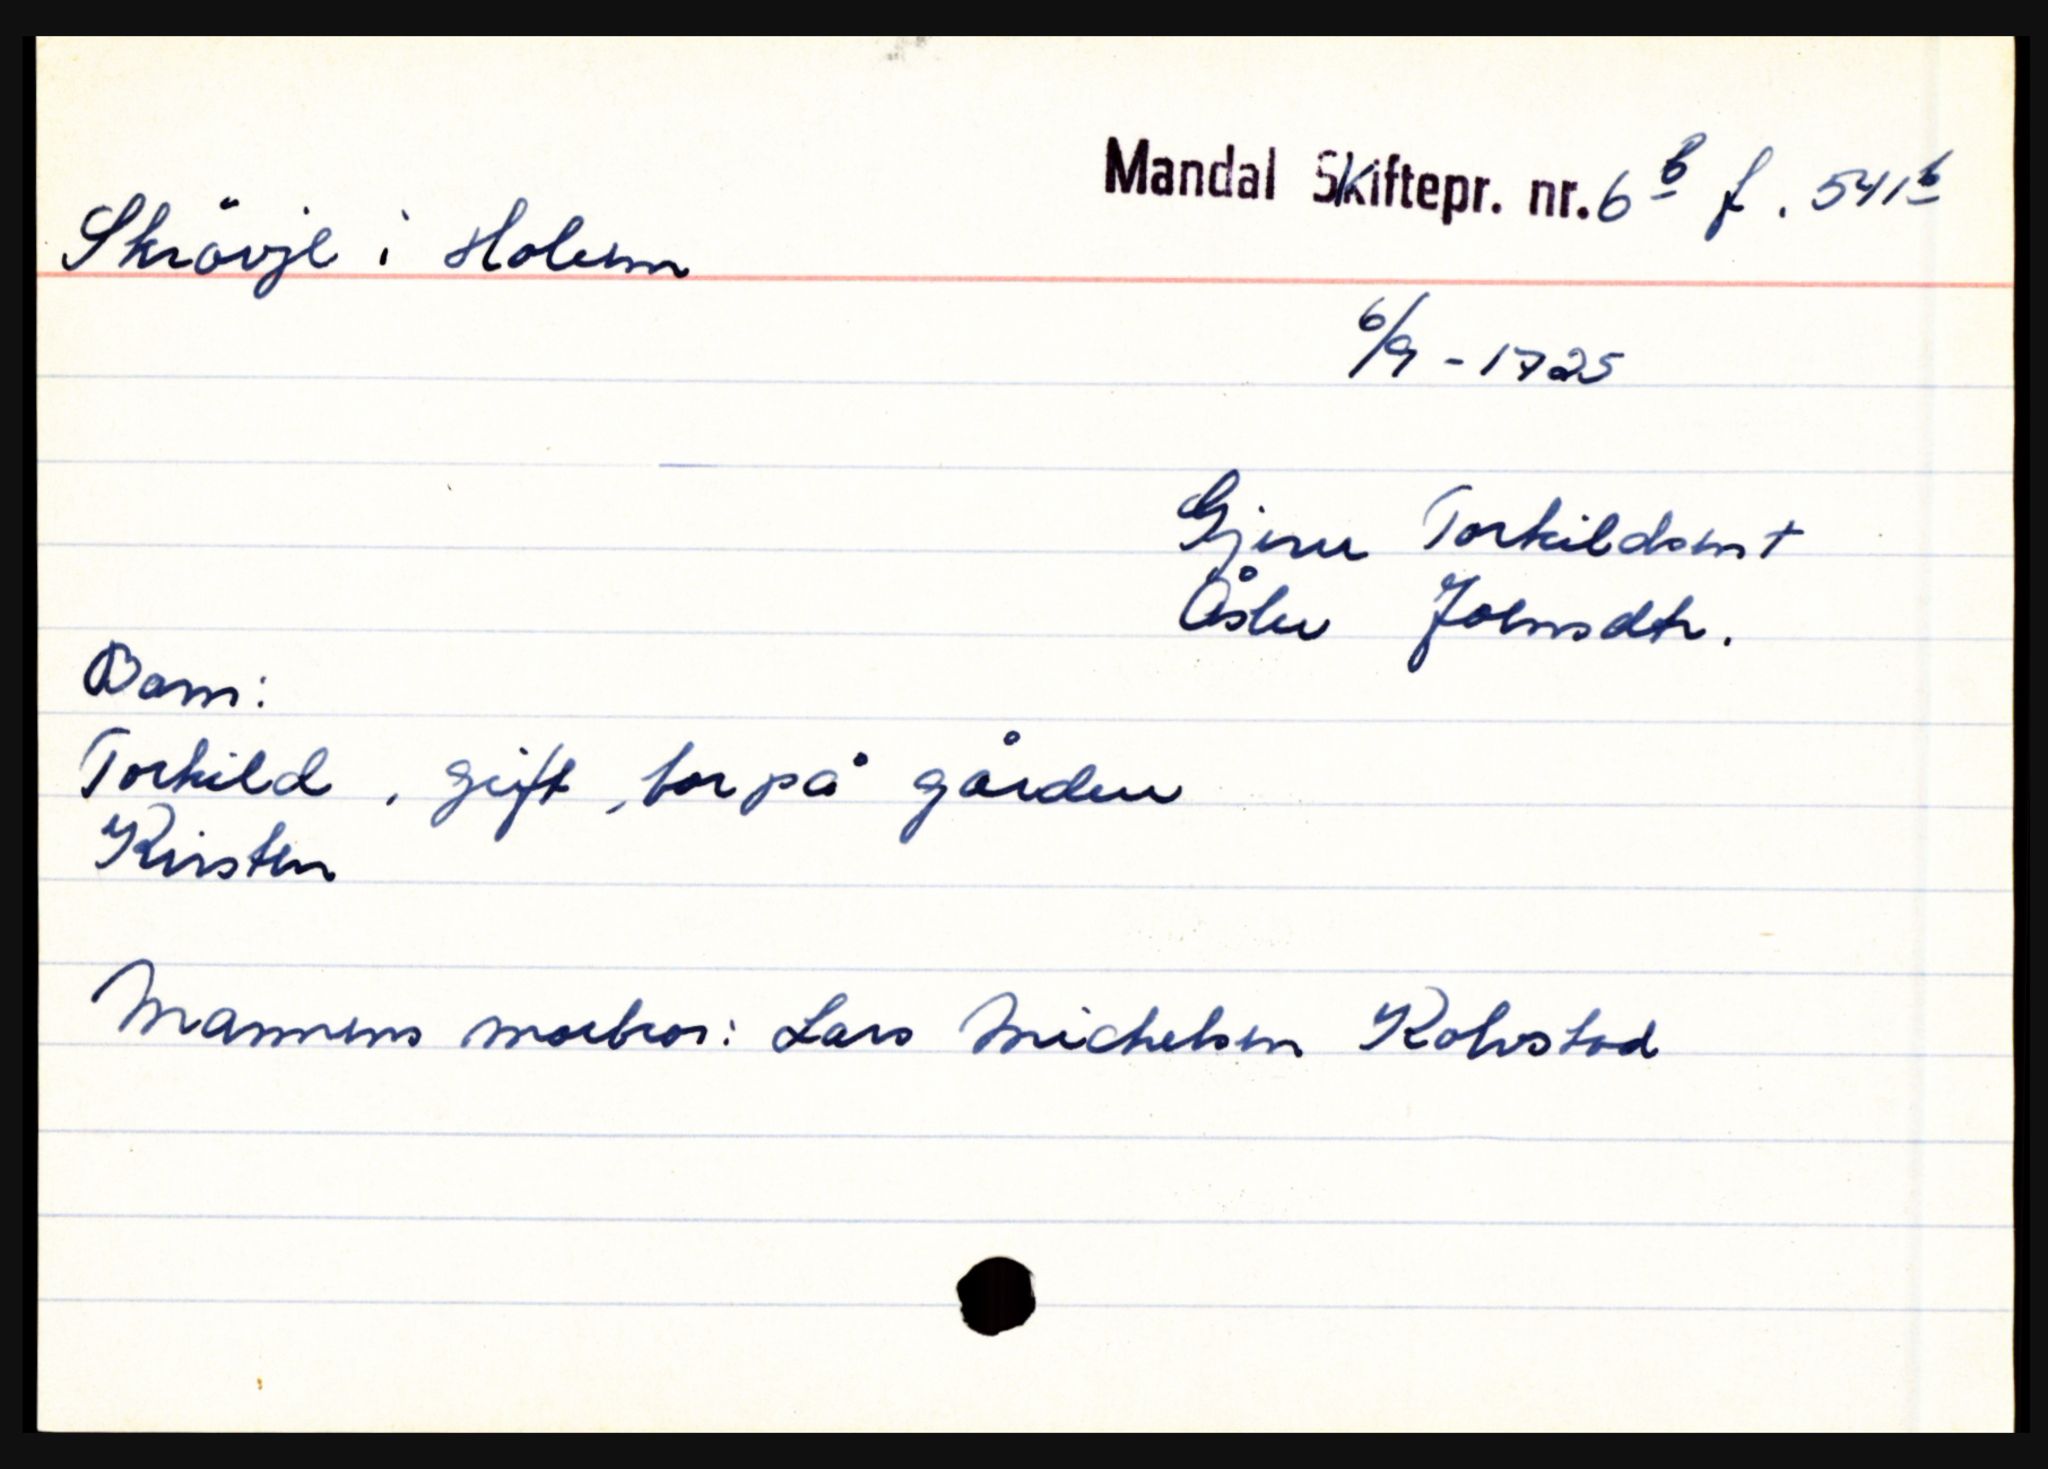 Mandal Skiftepr. nr. 6 b f. 541 b
Skrövje i Holum
6/9 - 1725
Gjeru Torkildsen +
Åslu Johnsdtr.
Barn:
Torkild, gift, bor på gården
Kirsten
Mannens morbror: Lars Michelsen Rolvstad